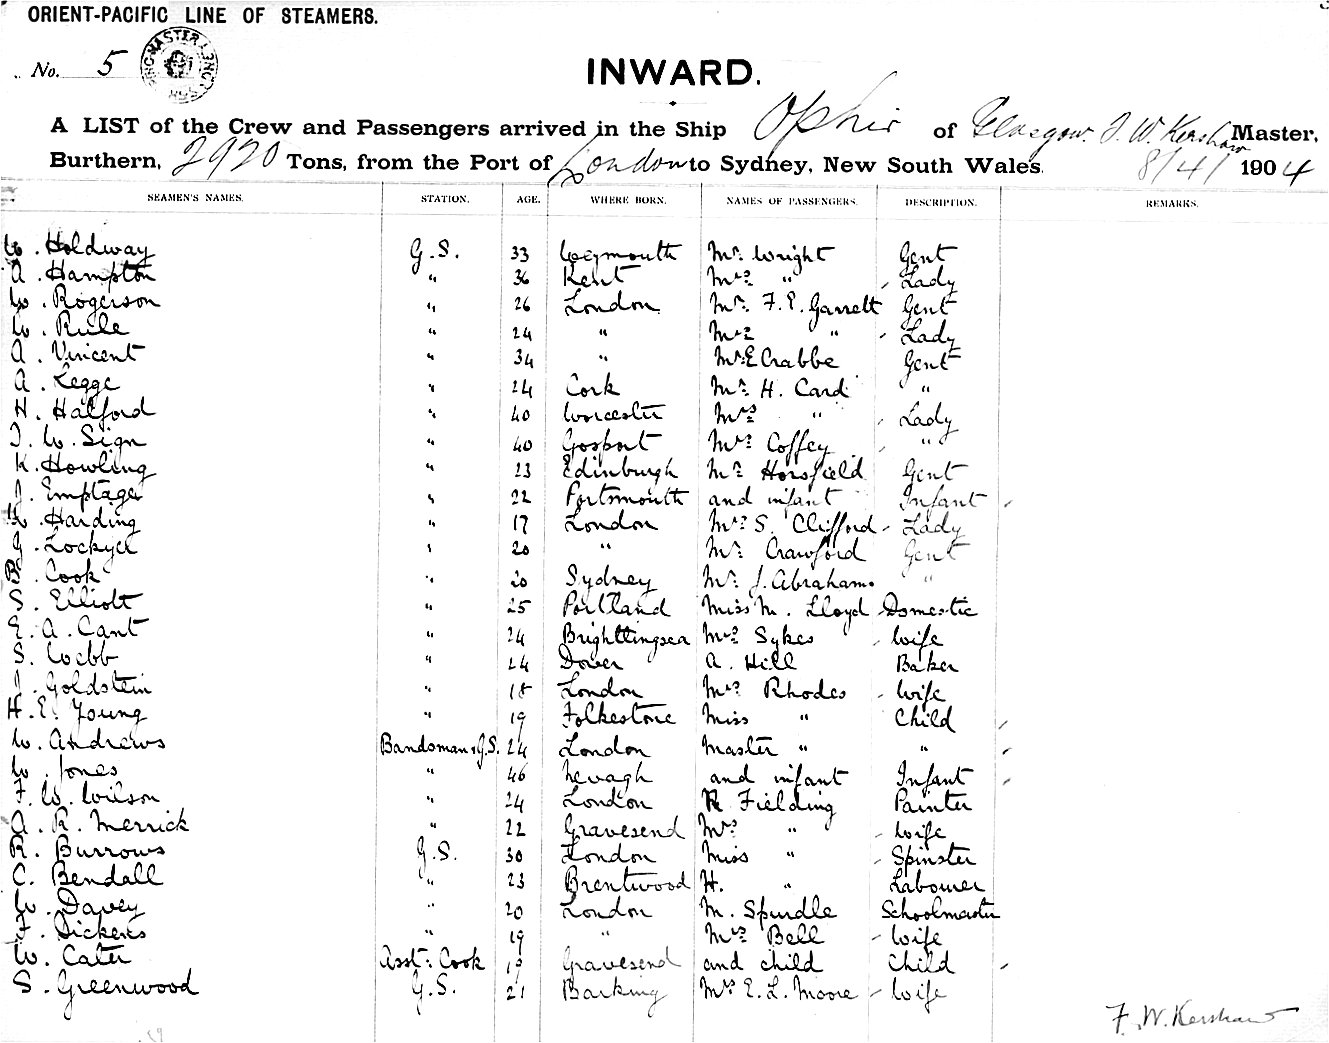 ORIENT-PACIFIC LINE OF STEAMERS.
No. 5
INWARD.
A LIST of the Crew and Passengers arrived in the Ship Ophir of Glasgow. F. W. Kershaw Master,
Burthern, 2920 Tons, from the Port of London to Sydney, New South Wales. 8/4/ 1904
SEAMEN'S NAMES. STATION. AGE. WHERE BORN. NAMES OF PASSENGERS. DESCRIPTION. REMARKS.
W. Holdway G.S. 33 Weymouth Mr. Wright Gent
A. Hampton " 36 Kent Mrs " Lady
W. Rogerson " 26 London Mr. F. E. Garrett Gent
W. Rule " 24 " Mrs " Lady
A. Vincent " 34 " Mr E Crabbe Gent
A. Legge " 24 Cork Mr. H. Card "
H. Halford " 40 Worcester Mrs " Lady
J. W. Sign " 40 Gosport Mrs Coffey "
K. Howling " 23 Edinburgh Mr Horsfield Gent
J. Emptage " 22 Portsmouth and infant Infant
Harding " 17 London Mrs S. Clifford Lady
G. Lockyer " 20 " Mr. Crawford Gent
B. Cook " 20 Sydney Mr. J. Abrahams "
S. Elliott " 25 Portland Miss M. Lloyd Domestic
E. A. Cant " 24 Brightlingsea Mrs Sykes Wife
S. Webb " 24 Dover A. Hill Baker
J. Goldstein " 18 London Mrs Rhodes Wife
H. E. Young " 19 Folkestone Miss " Child
W. Andrews Bandsman & G.S. 24 London Master " "
W. Jones " 46 Nevagh and infant Infant
F. W. Wilson " 24 London R Fielding Painter
A. R. Merrick " 22 Gravesend Mrs " Wife
R. Burrows G.S. 30 London Miss " Spinster
C. Bendall " 23 Brentwood H. " Labourer
W. Davey " 20 London M. Spurdle Schoolmaster
F. Dickens " 19 " Mrs Bell Wife
W. Cater Asst: Cook 19 Gravesend and child Child
S. Greenwood G.S. 21 Barking Mrs E. L. Moore Wife
F. W. Kershaw